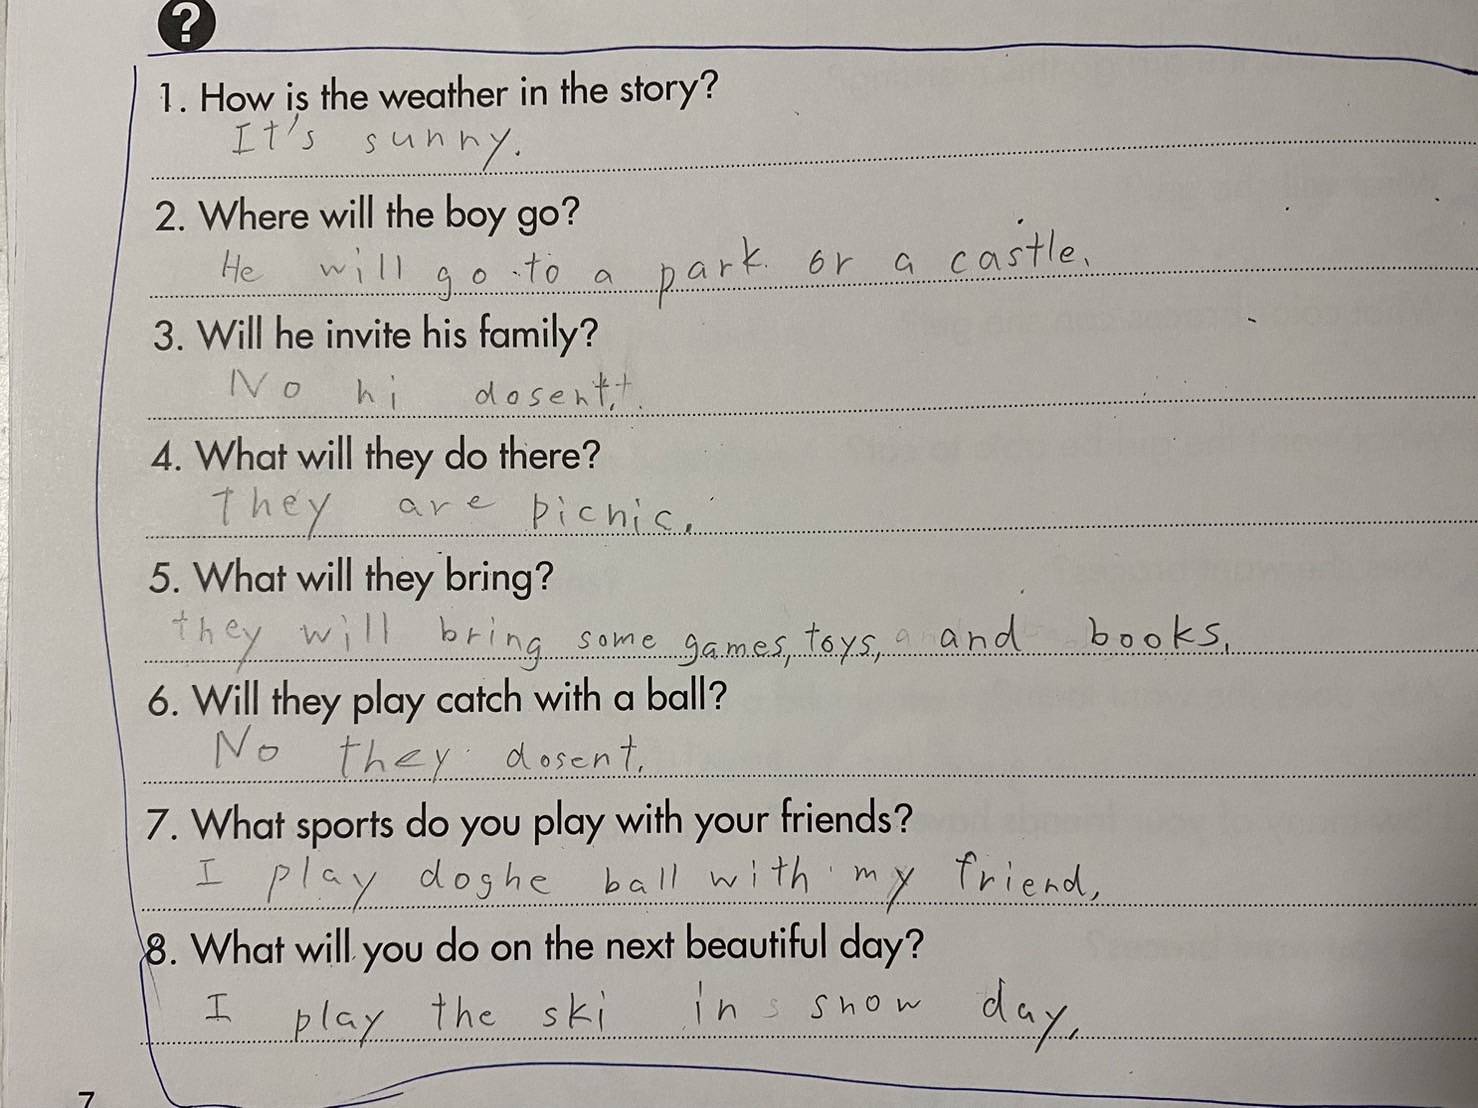 ?
1. How is the weather in the story?
It's sunny.
2. Where will the boy go?
He will go to a park or a castle.
3. Will he invite his family?
No hi dosent.
4. What will they do there?
They are picnic.
5. What will they bring?
they will bring some games, toys, and books.
6. Will they play catch with a ball?
No they dosent.
7. What sports do you play with your friends?
I play doghe ball with my friend,
8. What will you do on the next beautiful day?
I play the ski in snow day,
7